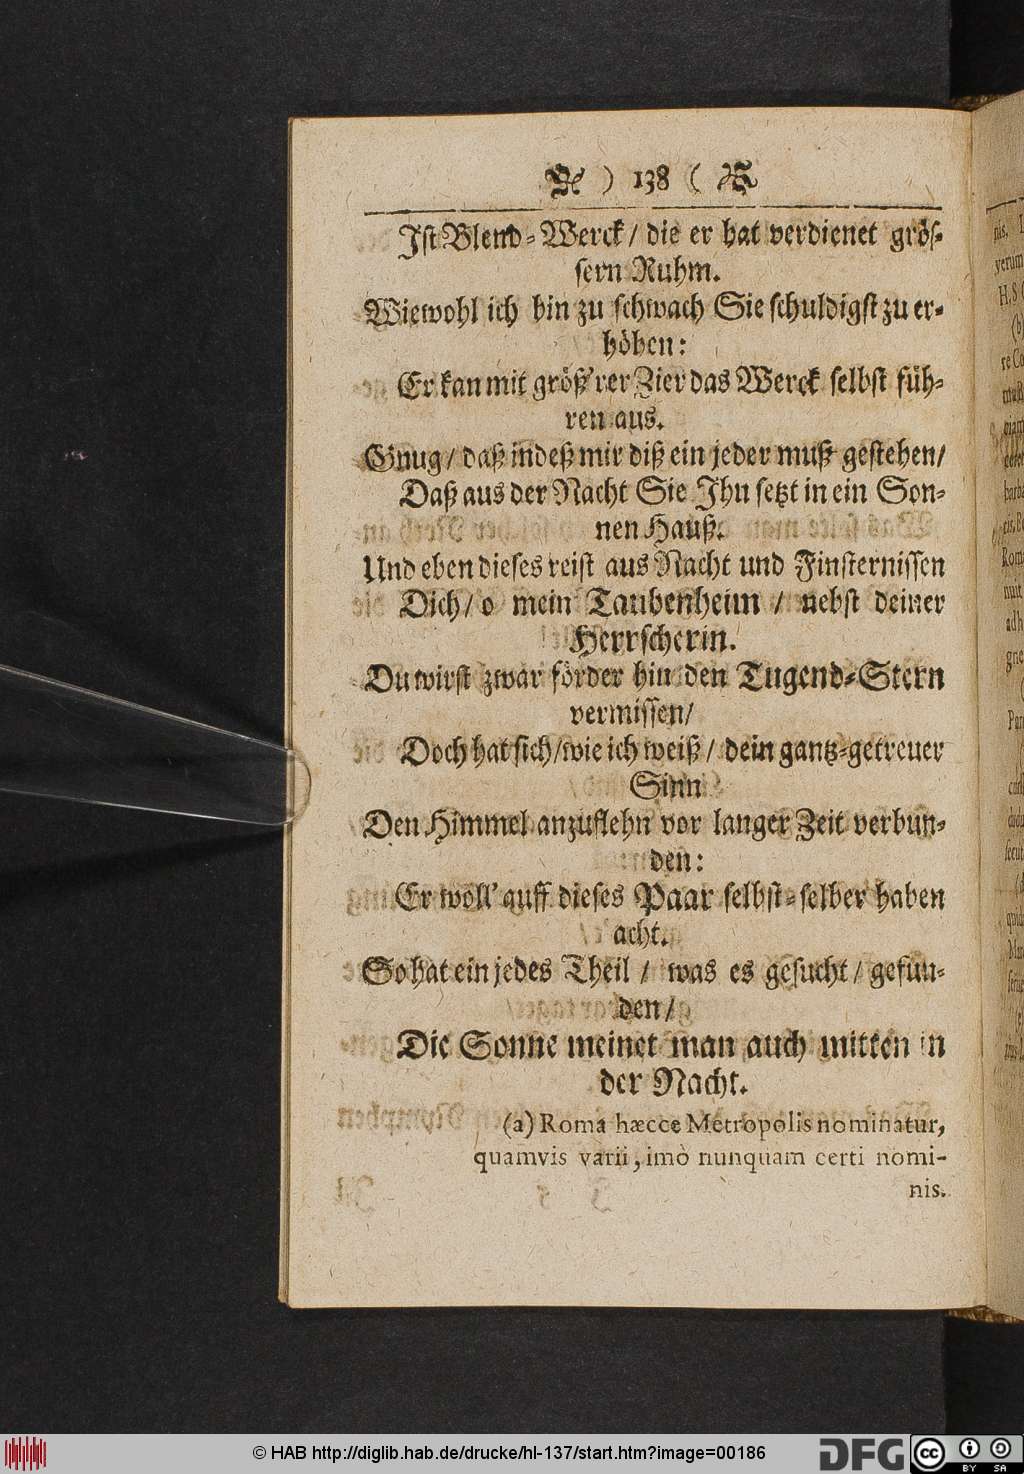 ) 138 (
Ist Blend-Werck / die er hat verdienet grös-
sern Ruhm.
Wiewohl ich bin zu schwach Sie schuldigst zu er-
höben:
Er kan mit größ'rer Zier das Werck selbst füh-
ren aus.
Gnug / daß indeß mir diß ein jeder muß gestehen /
Daß aus der Nacht Sie Ihn setzt in ein Son-
nen Hauß.
Und eben dieses reist aus Nacht und Finsternissen
Dich / o mein Taubenheim / nebst deiner
Herrscherin.
Du wirst zwar förder hin den Tugend-Stern
vermissen /
Doch hat sich / wie ich weiß / dein gantz-getreuer
Sinn
Den Himmel anzuflehn vor langer Zeit verbun-
den:
Er woll' auff dieses Paar selbst-selber haben
acht.
So hat ein jedes Theil / was es gesucht / gefun-
den /
Die Sonne meinet man auch mitten in
der Nacht.
(a) Roma hæcce Metropolis nominatur,
quamvis varii, imò nunquam certi nomi-
nis.
© HAB http://diglib.hab.de/drucke/hl-137/start.htm?image=00186
DFG
cc
BY SA